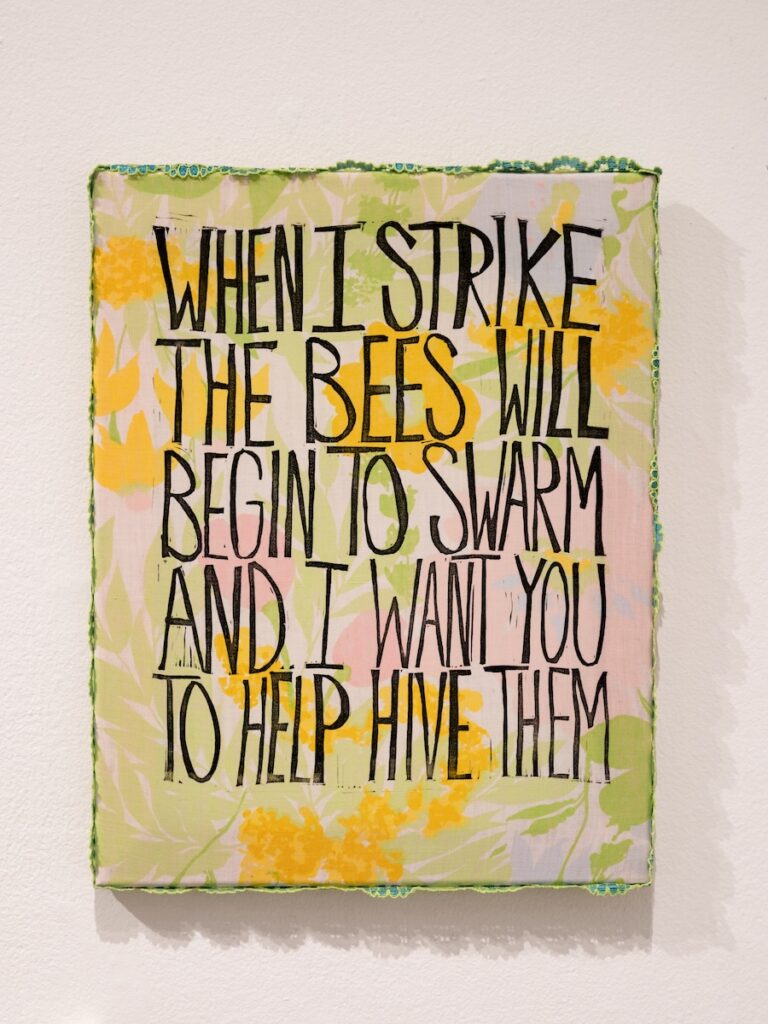 WHEN I STRIKE
THE BEES WILL
BEGIN TO SWARM
AND I WANT YOU
TO HELP HIVE THEM